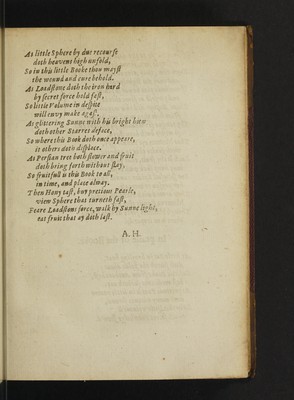 As little Sphere by due recourse
doth heavens high unfold,
So in this little Booke thou mayst
the wound and cure behold.
As Loadstone doth the iron hard
by secret force hold fast,
So little Volume in despite
will envy make agast.
As glittering Sunne with his bright hew
doth other Starres deface,
So where this Book doth once appeare,
it others doth displace.
As Persian tree both flower and fruit
doth bring forth without stay,
So fruitfull is this Book to all,
in time, and place alway.
Then Hony tast, buy pretious Pearle,
view Sphere that turneth fast,
Feare Loadstons force, walk by Sunne light,
eat fruit that ay doth last.
A. H.